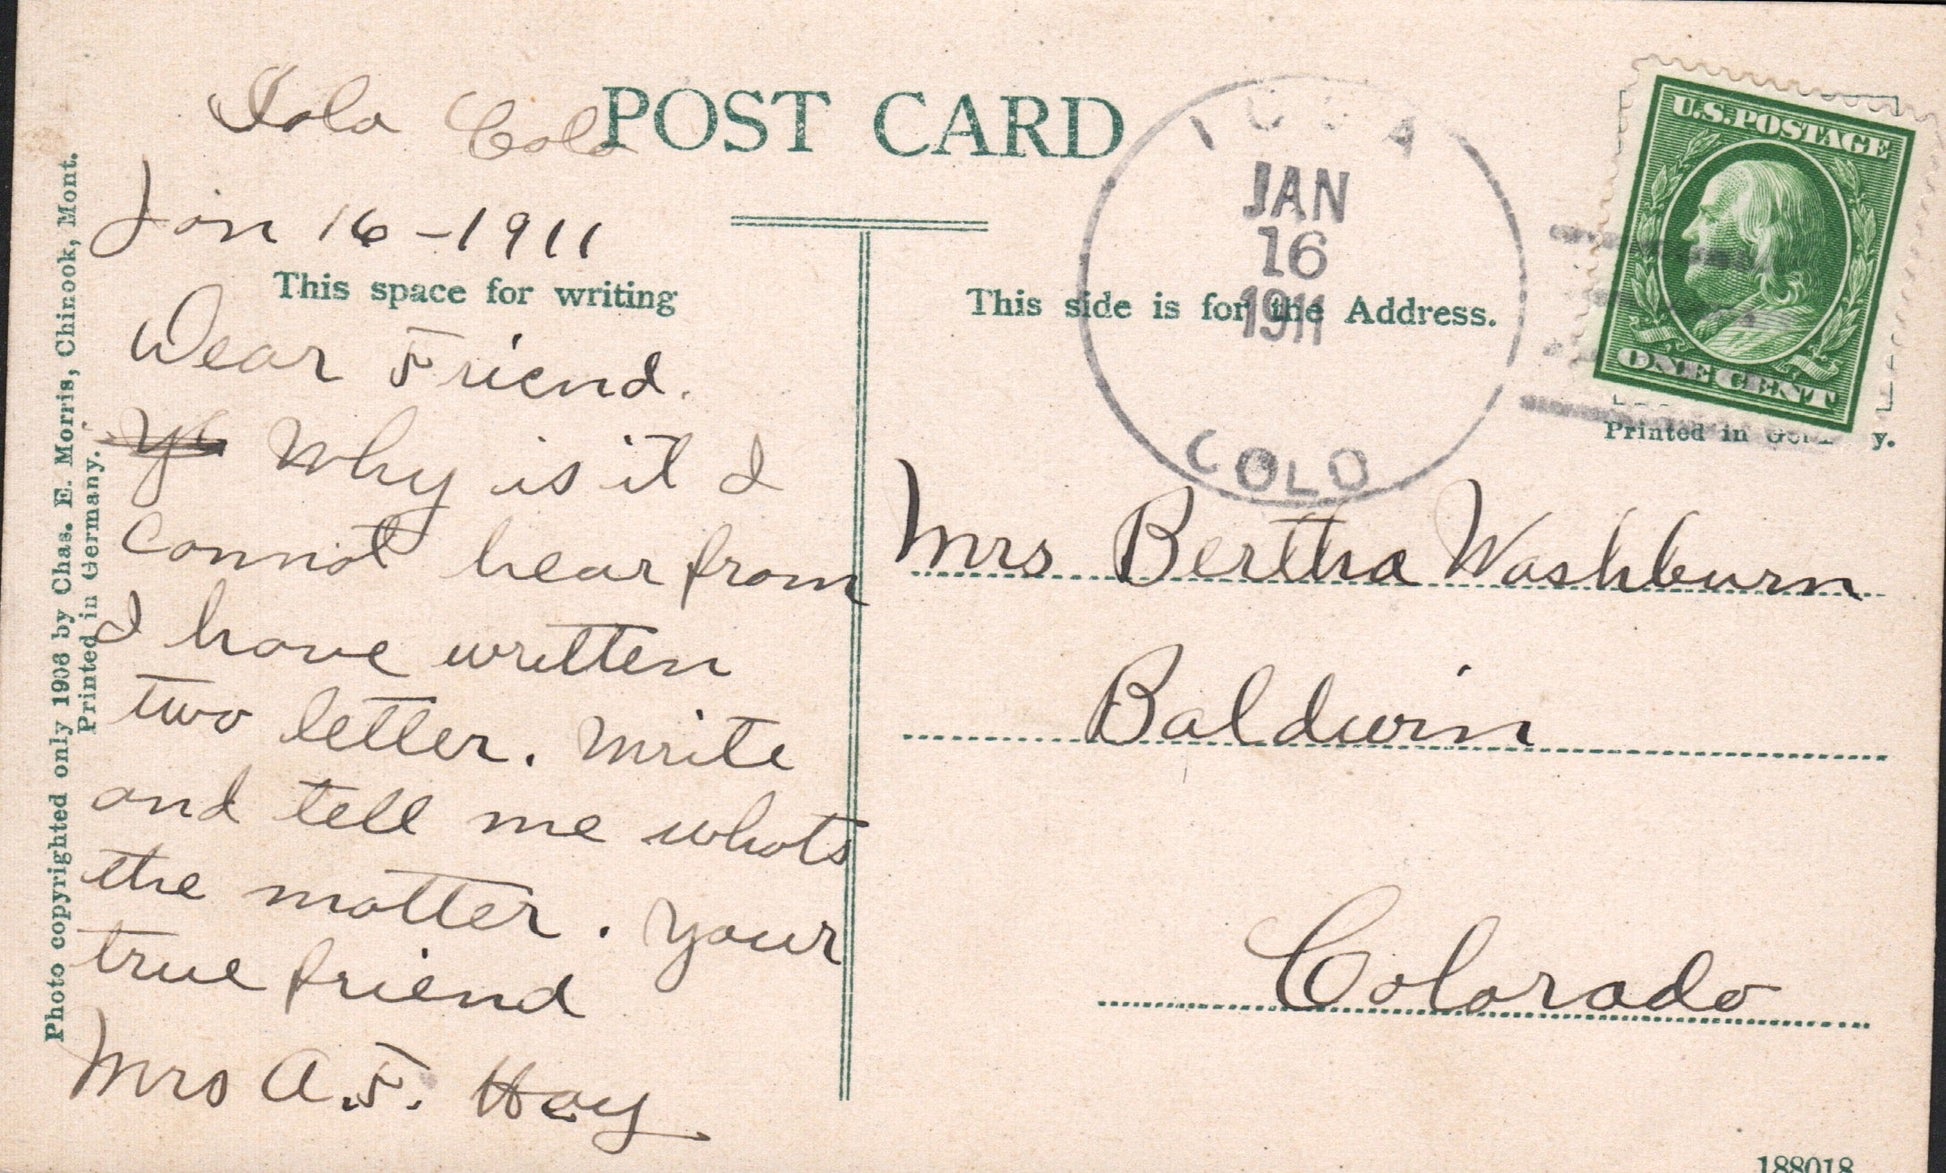 Iola Colo
POST CARD
Jan 16-1911
This space for writing
Dear Friend.
Why is it I
cannot hear from
I have written
two letter. Write
and tell me whats
the matter. Your
true friend
Mrs A.F. Hay
Photo copyrighted only 1906 by Chas. E. Morris, Chinook, Mont.
Printed in Germany.
JAN
16
1911
COLO
U.S. POSTAGE
ONE CENT
This side is for the Address.
Printed in Germany.
Mrs Bertha Washburn
Baldwin
Colorado
188018